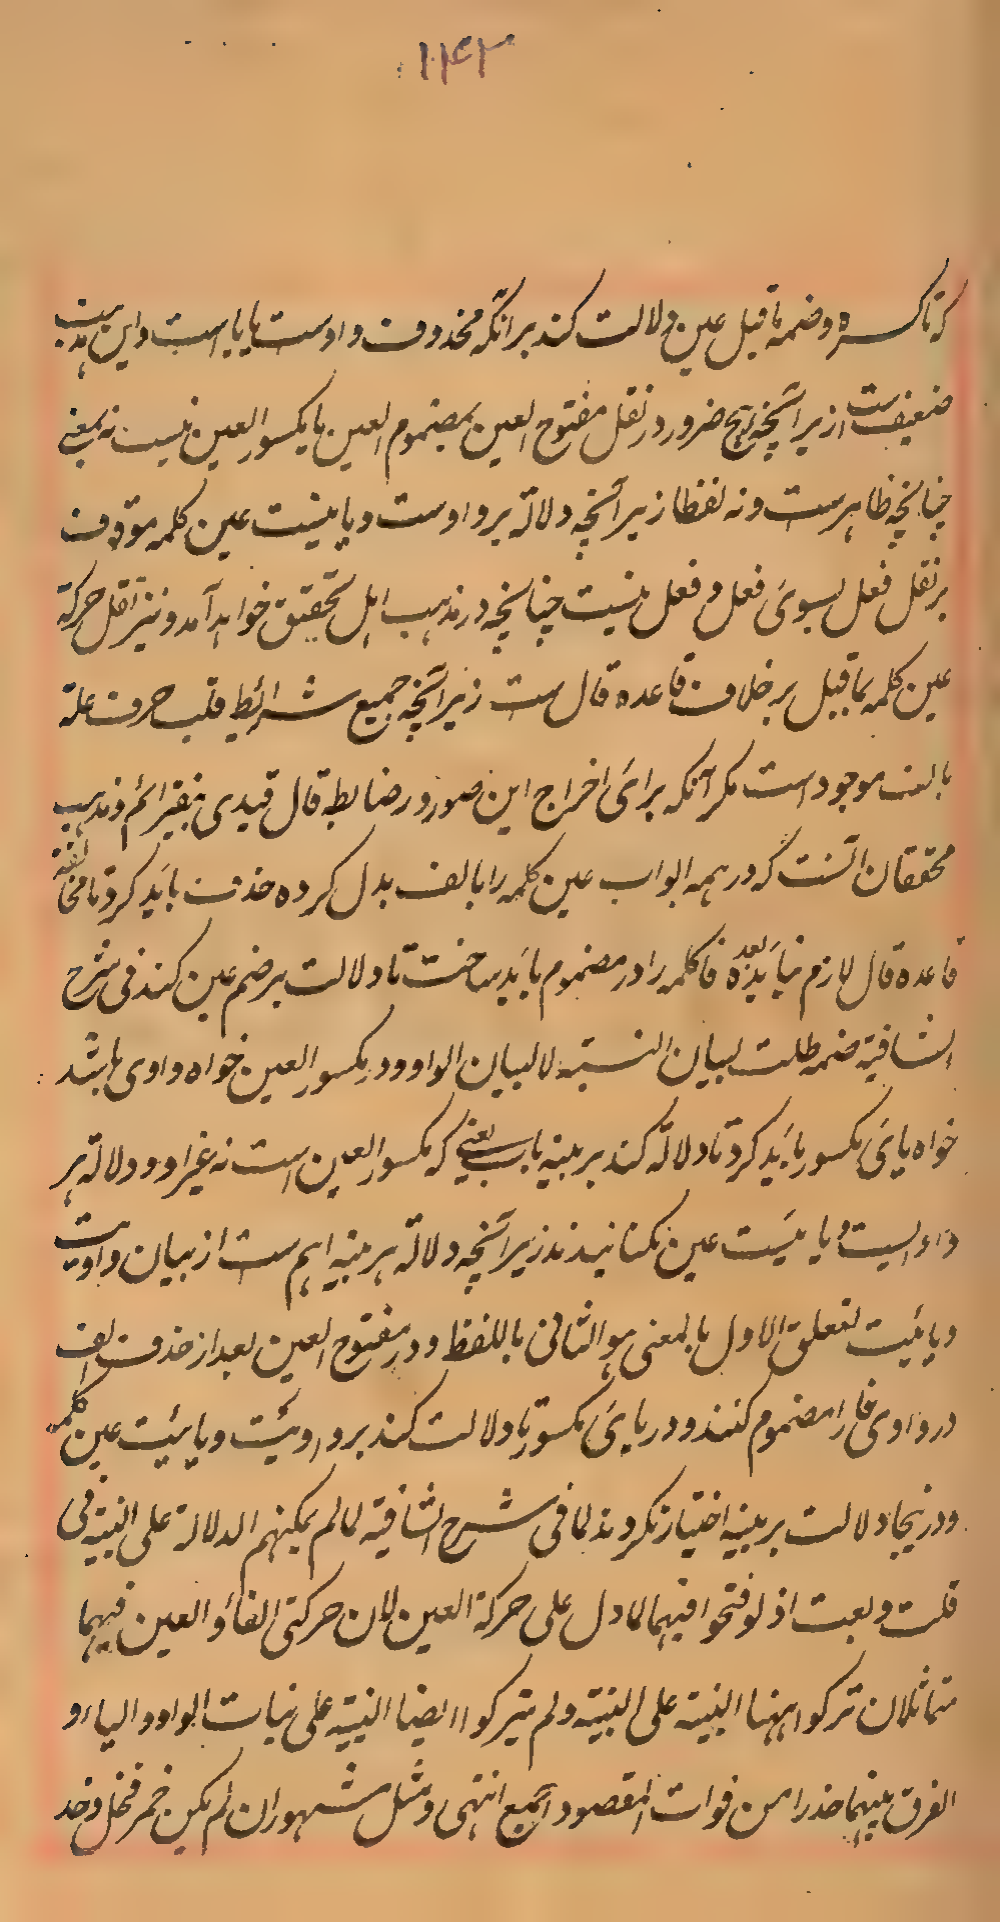 ۱۴۳
که تا کسره و ضمه ما قبل عین دلالت کند بر انکه محذوف واوست یا یا است و این مذهب
ضعیف ست از یرا آنچه هیچ ضرور در نقل مفتوح العین بمضموم العین یا مکسور العین نیست نه بمعنی
چنانچه ظاهرست و نه لفظا زیرا آنچه دلالة بر واوست و یاییت عین کلمه موقوف
بر نقل فعل بسوی فعل و فعل نیست چنانچه در مذهب اهل تحقیق خواهد آمد و نیز نقل حرکة
عین کلمه بما قبل بر خلاف قاعده قال ست زیرا آنچه جمیع شرائط قلب حرف علة
بالف موجود است مکر آنکه برای اخراج این صور در ضابطه قال قیدی بیفزائم و مذهب
محققان آنست که در همه ابواب عین کلمه را بالف بدل کرده حذف باید کرد تا مخالفة
قاعده قال لازم نیاید بعده فا کلمه را در مضموم باید ساخت تا دلالت بر ضم عین کند فی شرح
الشافیة ضمه طلت لبیان النسبة لا لبیان الواو و در مکسور العین خواه واوی باشد
خواه یای مکسور باید کرد تا دلالة کند بر بنیه باب یعنی که مکسور العین است نه غیر او و دلالة بر
واویست و یاییت عین نکنانیدند زیرا آنچه دلالة بر بنیه اهم ست از بیان واویت
و یائیت لتعلق الاول بالمعنی و الثانی باللفظ و در مفتوح العین بعد از حذف الف
در واوی فا را مضموم کنند و در یای مکسور تا دلالت کند بر واویت و یائیت عین کلمه
و درینجا دلالت بر بنیه اختیار نکردند لما فی شرح الشافیة لما لم یمکنهم الدلالة علی البنیة فی
قلت و بعت اذ لو فتحوا فیهما لما دل علی حرکة العین لان حرکتی الفاء و العین فیهما
متماثلان ترکوا ههنا البنیة علی البنیة و لم یترکوا ایضا البنیة علی بنات الواو و الیاء و
الفرق بینهما حذرا من فوات المقصود اجمع انتهی و مثل مشهور ان لم یکن خمر فخل و خذ